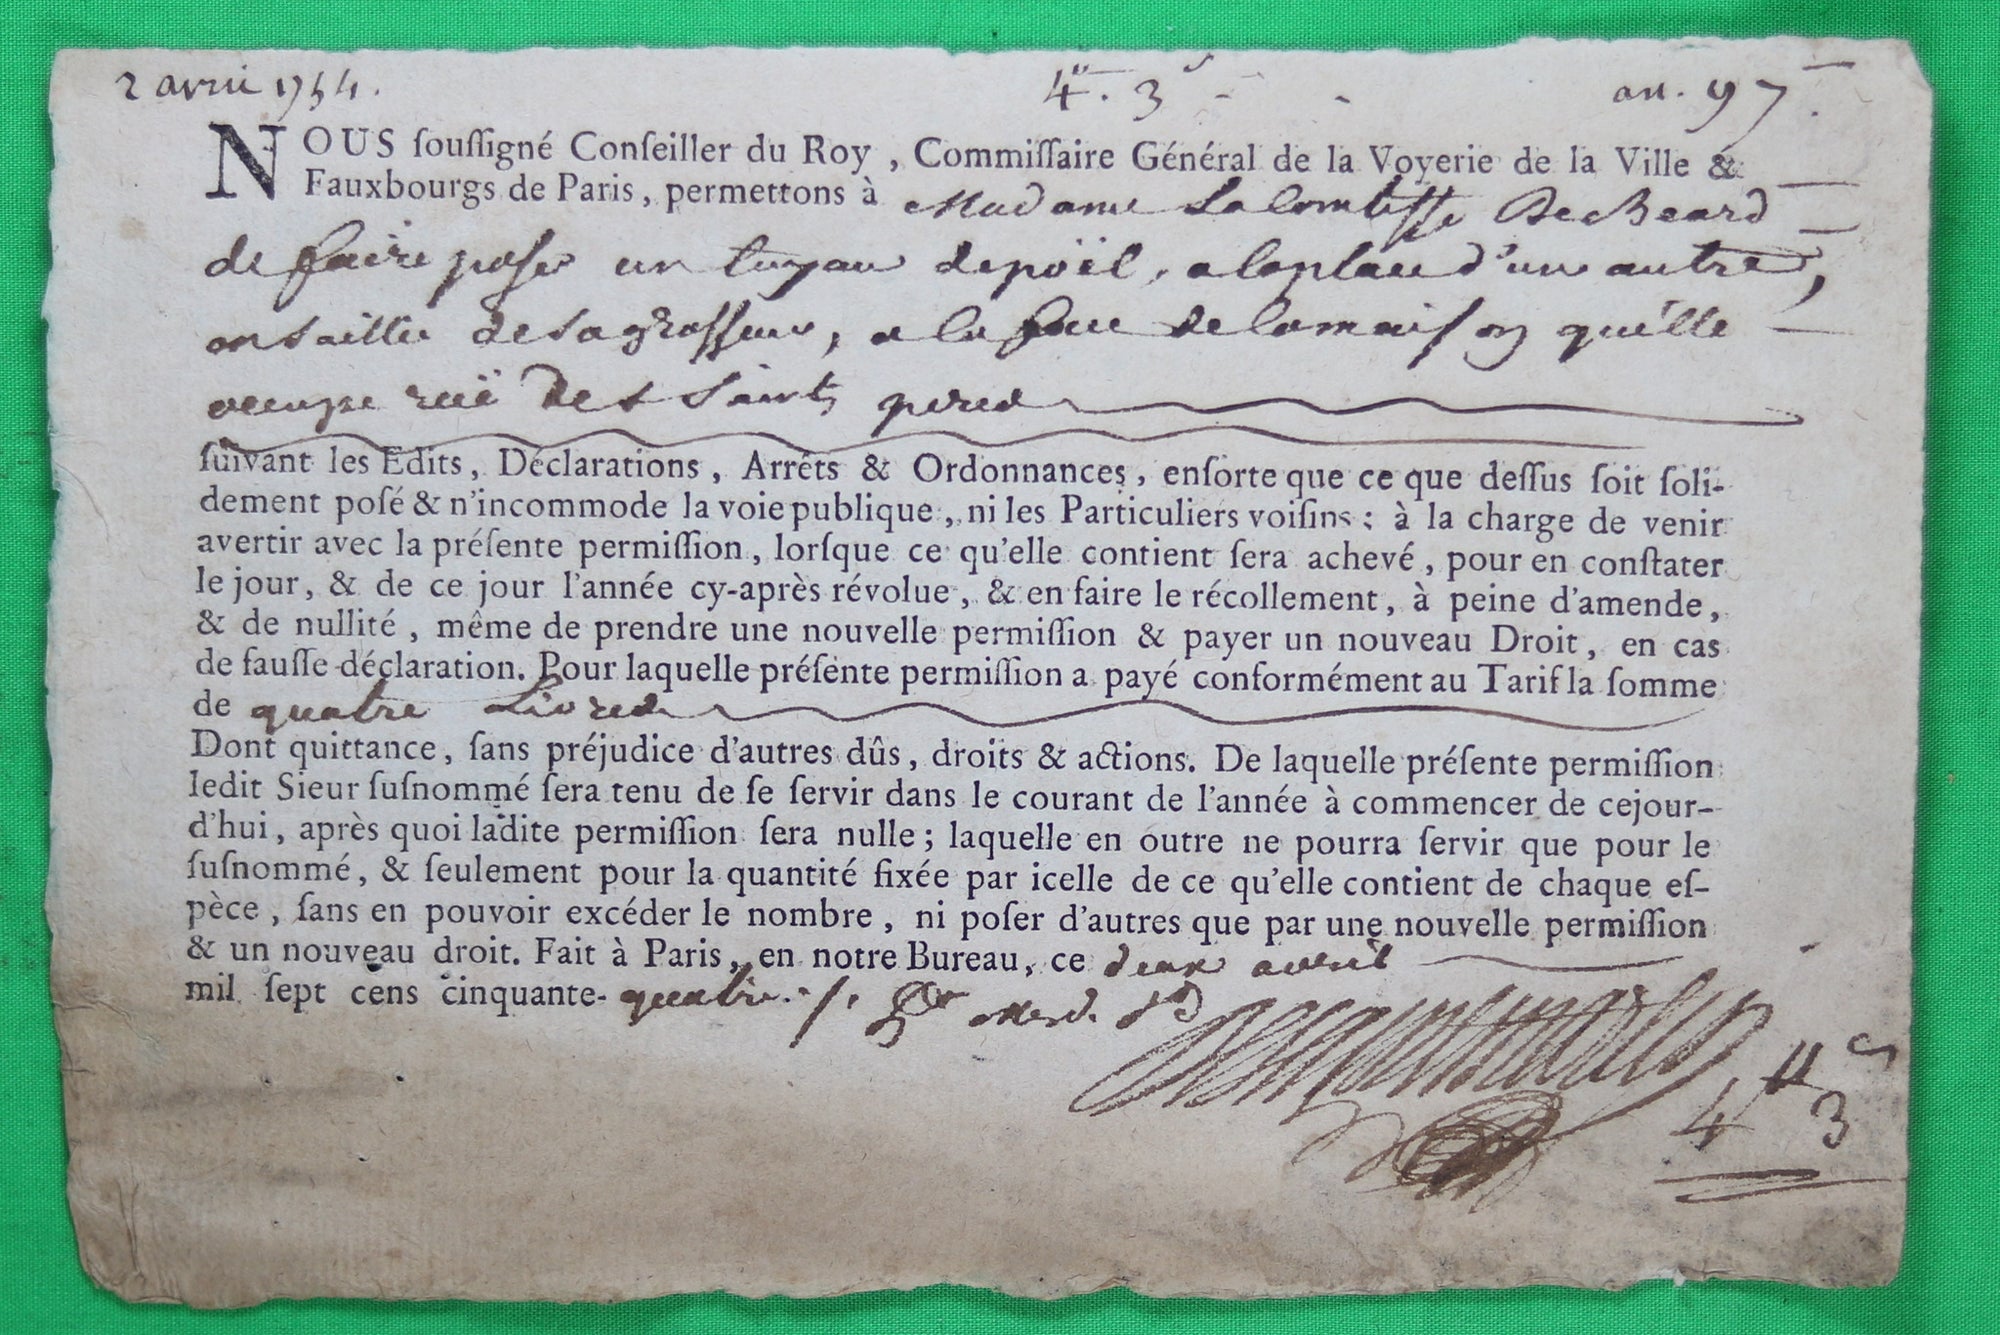 2 avril 1754. 4ʰ. 3ˢ an. 97
NOUS ſouſſigné Conſeiller du Roy, Commiſſaire Général de la Voyerie de la Ville &
Fauxbourgs de Paris, permettons à Madame La Comtesse De Beard
de faire poser un tuyau de poël, a la place d'un autre,
en saillie de sa grosseur, a la face de la maison qu'elle
occupe ruë des Saints peres
ſuivant les Edits, Déclarations, Arrêts & Ordonnances, enſorte que ce que deſſus ſoit ſoli-
dement poſé & n'incommode la voie publique, ni les Particuliers voiſins : à la charge de venir
avertir avec la préſente permiſſion, lorſque ce qu'elle contient ſera achevé, pour en conſtater
le jour, & de ce jour l'année cy-après révolue, & en faire le récollement, à peine d'amende,
& de nullité, même de prendre une nouvelle permiſſion & payer un nouveau Droit, en cas
de fauſſe déclaration. Pour laquelle préſente permiſſion a payé conformément au Tarif la ſomme
de quatre Livres
Dont quittance, ſans préjudice d'autres dûs, droits & actions. De laquelle préſente permiſſion
ledit Sieur ſuſnommé ſera tenu de ſe ſervir dans le courant de l'année à commencer de cejour-
d'hui, après quoi ladite permiſſion ſera nulle ; laquelle en outre ne pourra ſervir que pour le
ſuſnommé, & ſeulement pour la quantité fixée par icelle de ce qu'elle contient de chaque eſ-
pèce, ſans en pouvoir excéder le nombre, ni poſer d'autres que par une nouvelle permiſſion
& un nouveau droit. Fait à Paris, en notre Bureau, ce deux avril
mil ſept cens cinquante-quatre
4 3